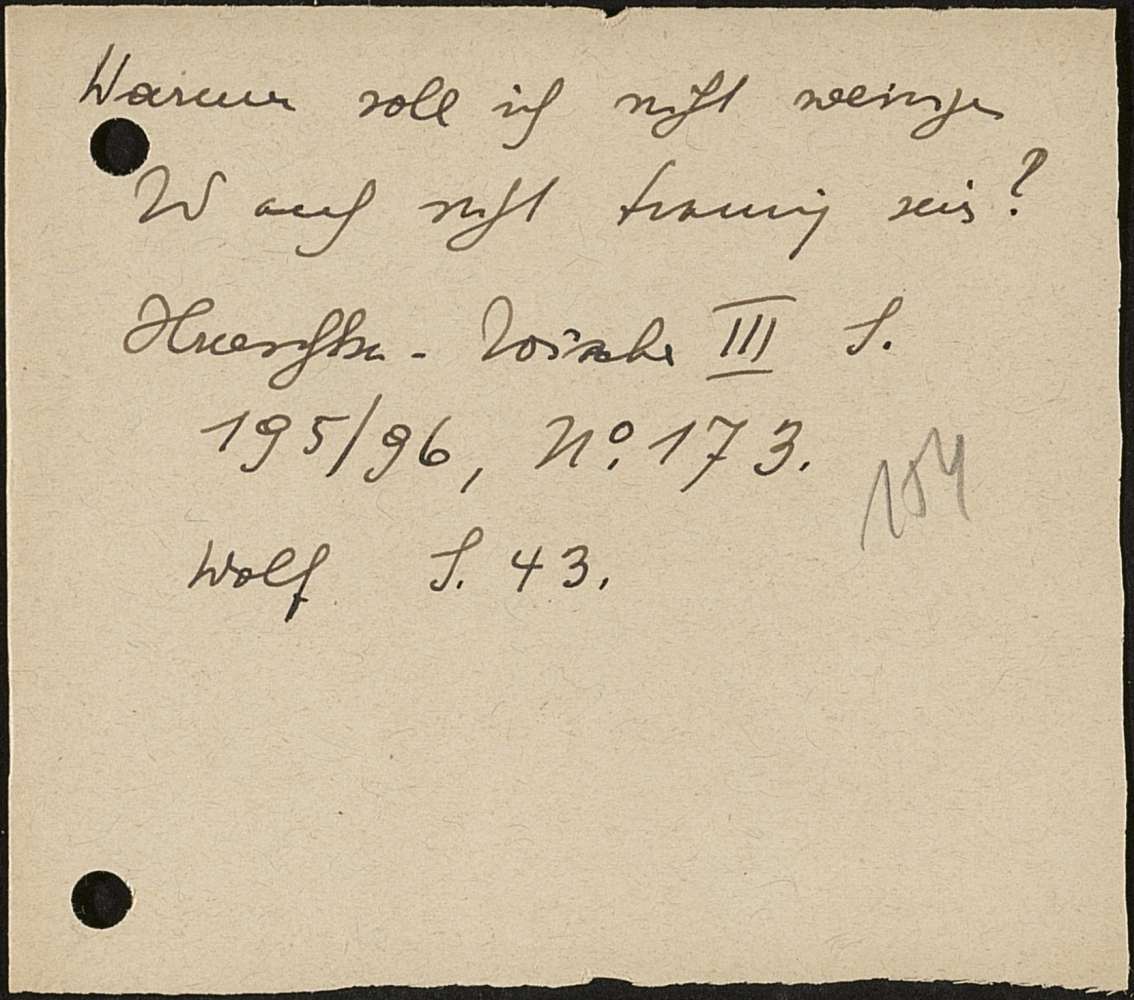 Warum soll ich nicht weinen
W auch nicht traurig sein?
Hruschka - Toischer III S.
195/96, No. 173.
104
Wolf S. 43.